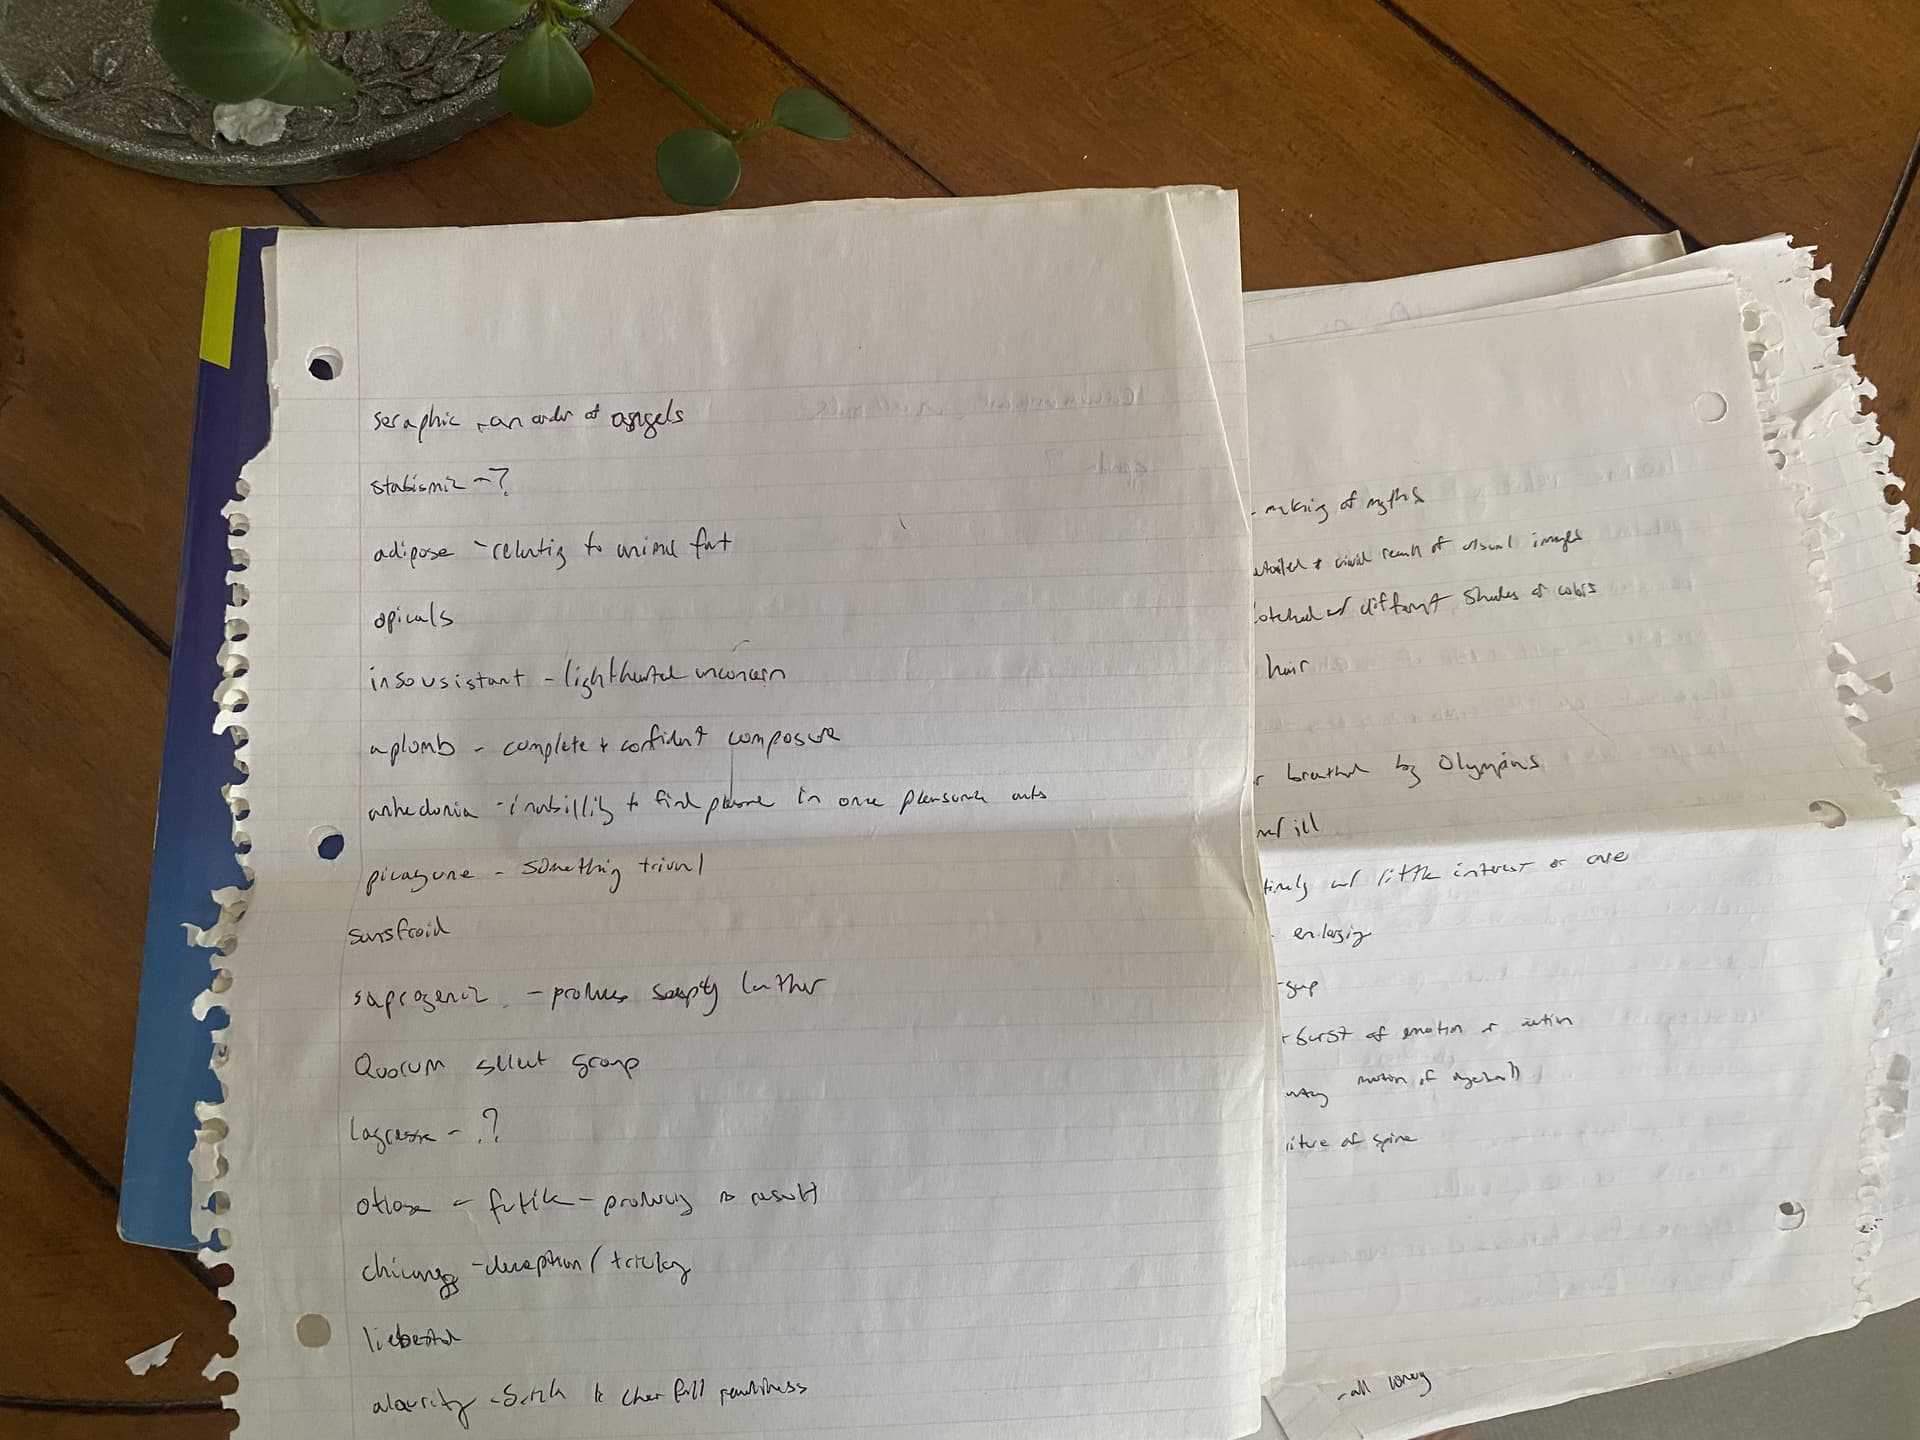 seraphic - an order of angels
stabismic - ?
adipose - relating to animal fat
apicals
insousistant - lighthearted unconcern
aplomb - complete + confident composure
anhedonia - inability to find pleasure in once pleasurable acts
picayune - something trivial
sansfroid
saprogenic - produces soapy lather
Quorum select group
- ?
otiose - futile - producing no result
chicanery - deception / trickery
liebestod
alacrity - cheerful readiness
- making of myths
+ vivid recall of visual images
w/ different shades of colors
hair
breathed by Olympians
ill
w/ little interest or care
- enlarging
- gap
- burst of emotion or action
motion of eyeball
of spine
- all